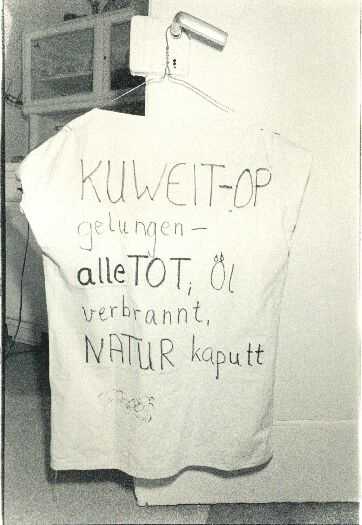 KUWEIT-OP
gelungen –
alle TOT, Öl
verbrannt,
NATUR kaputt